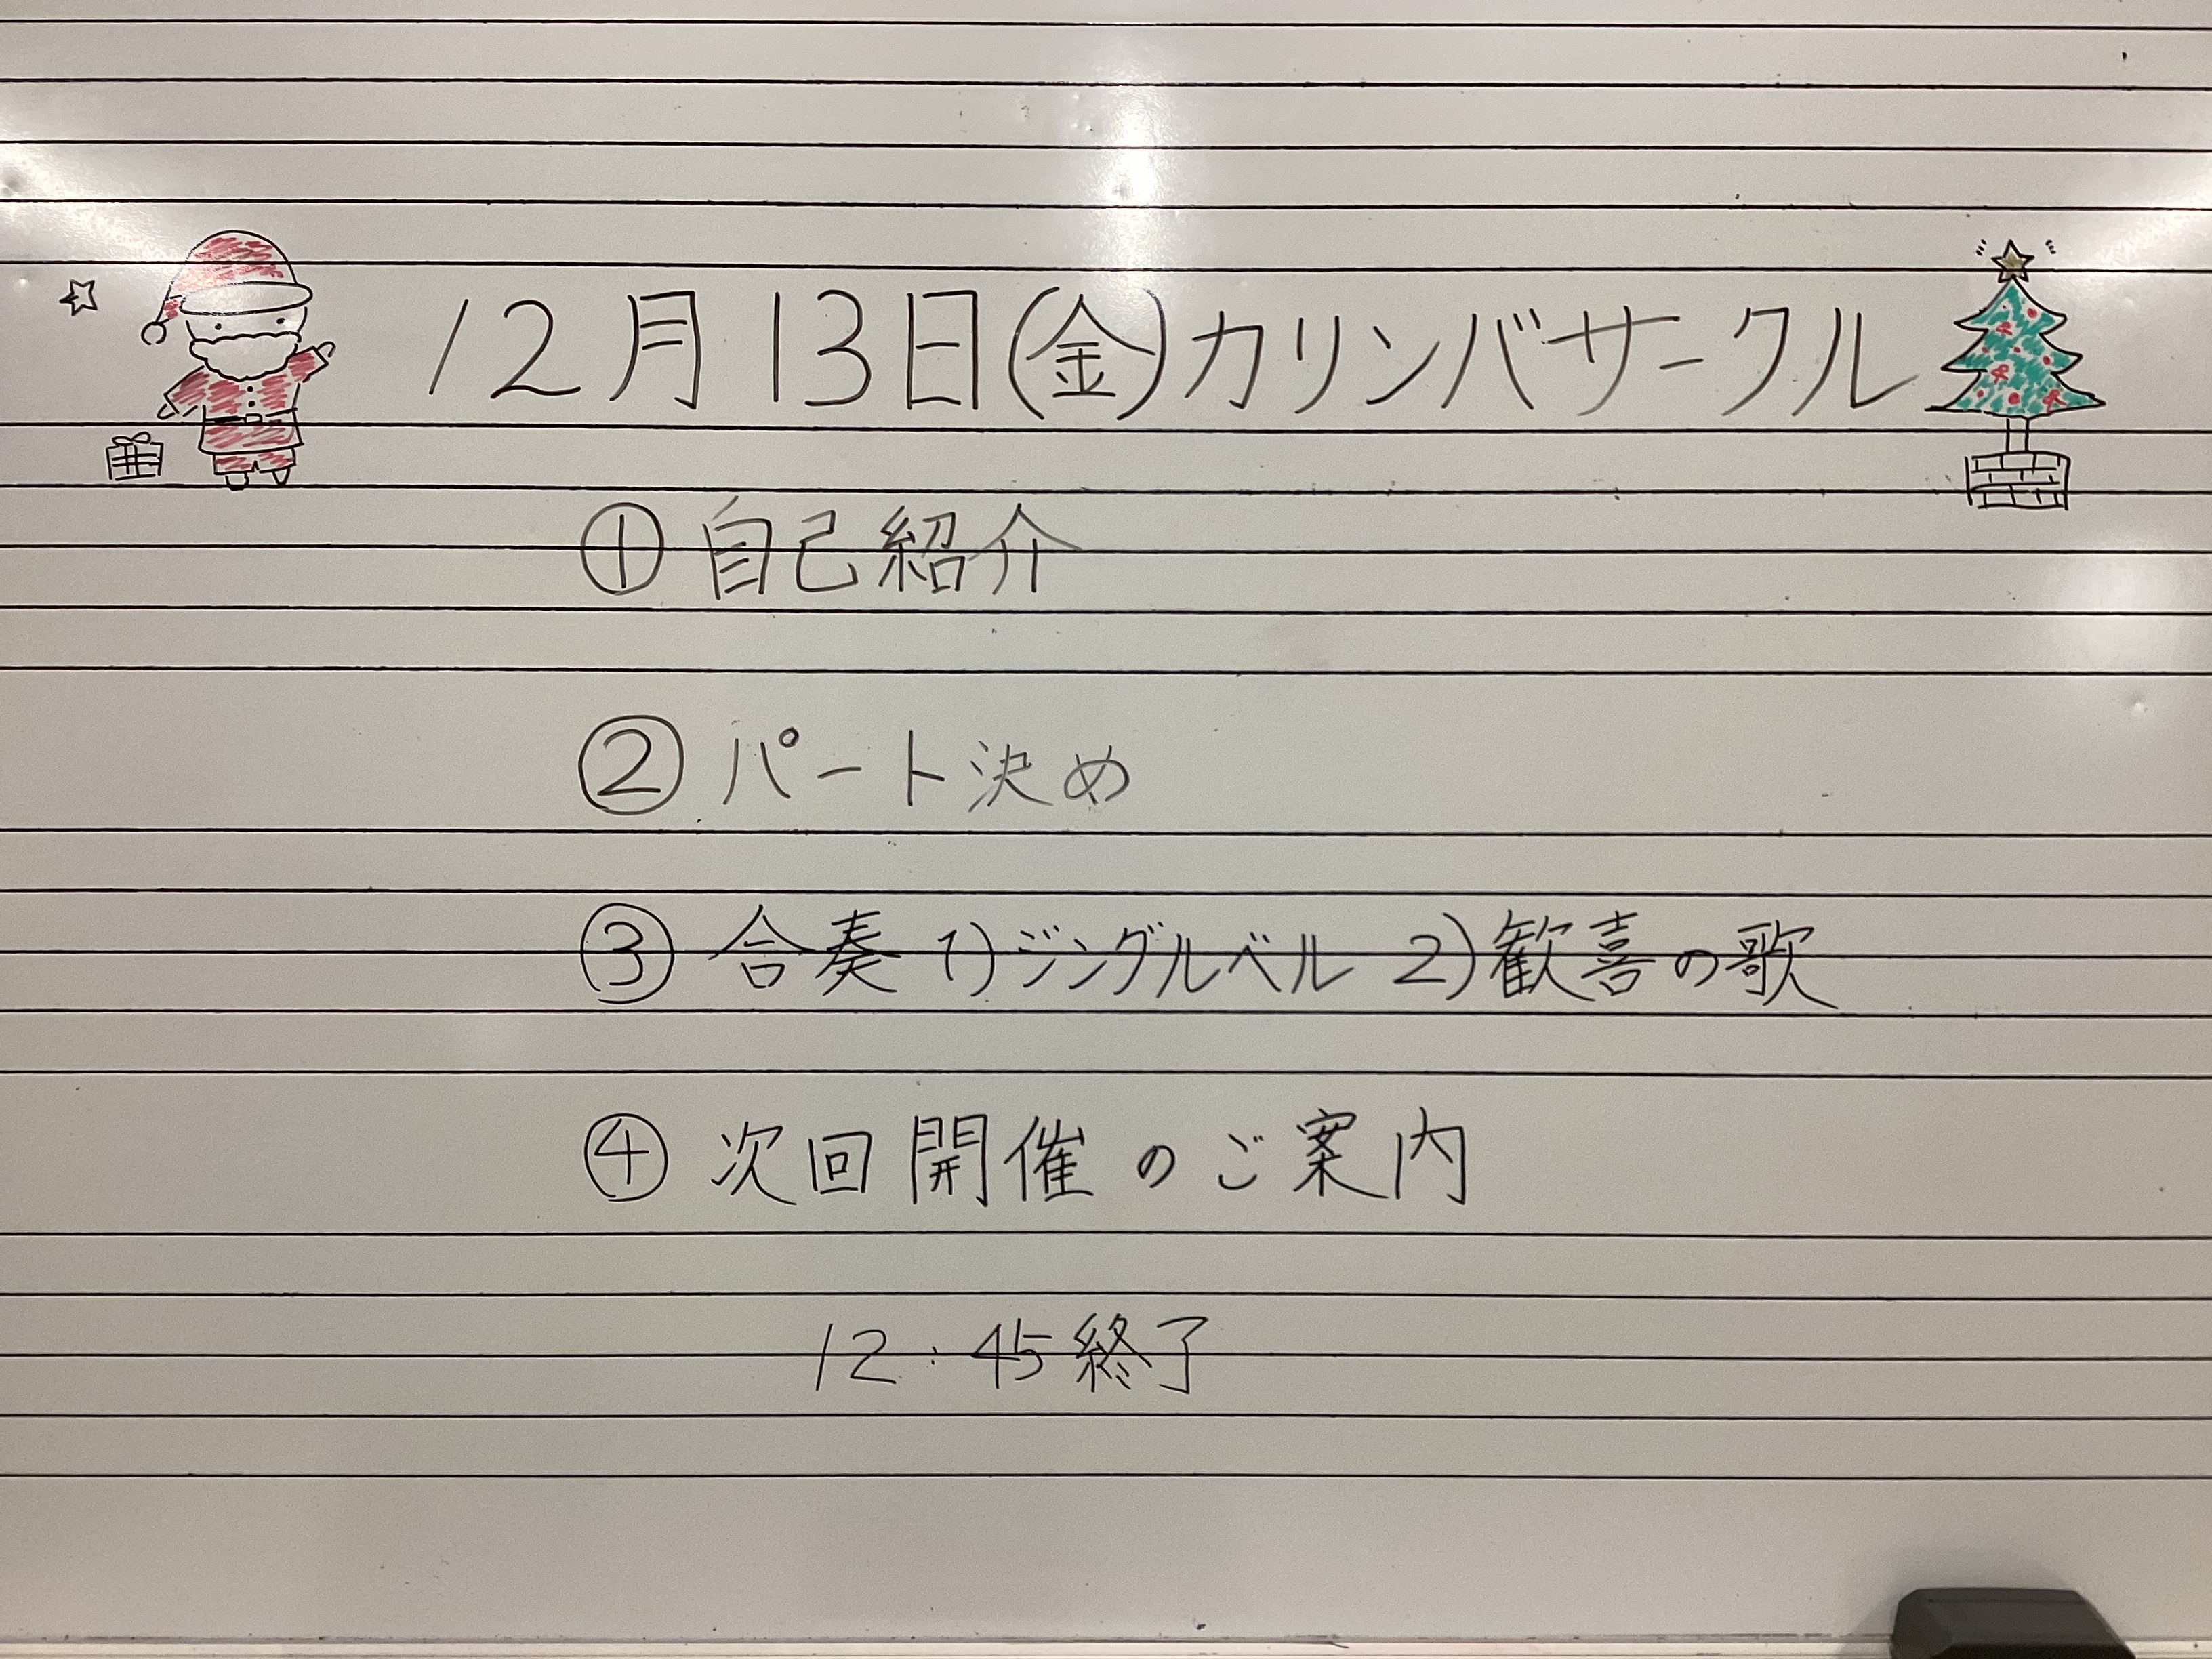 12月13日(金)カリンバサークル
①自己紹介
②パート決め
③合奏 1)ジングルベル 2)歓喜の歌
④次回開催のご案内
12:45終了